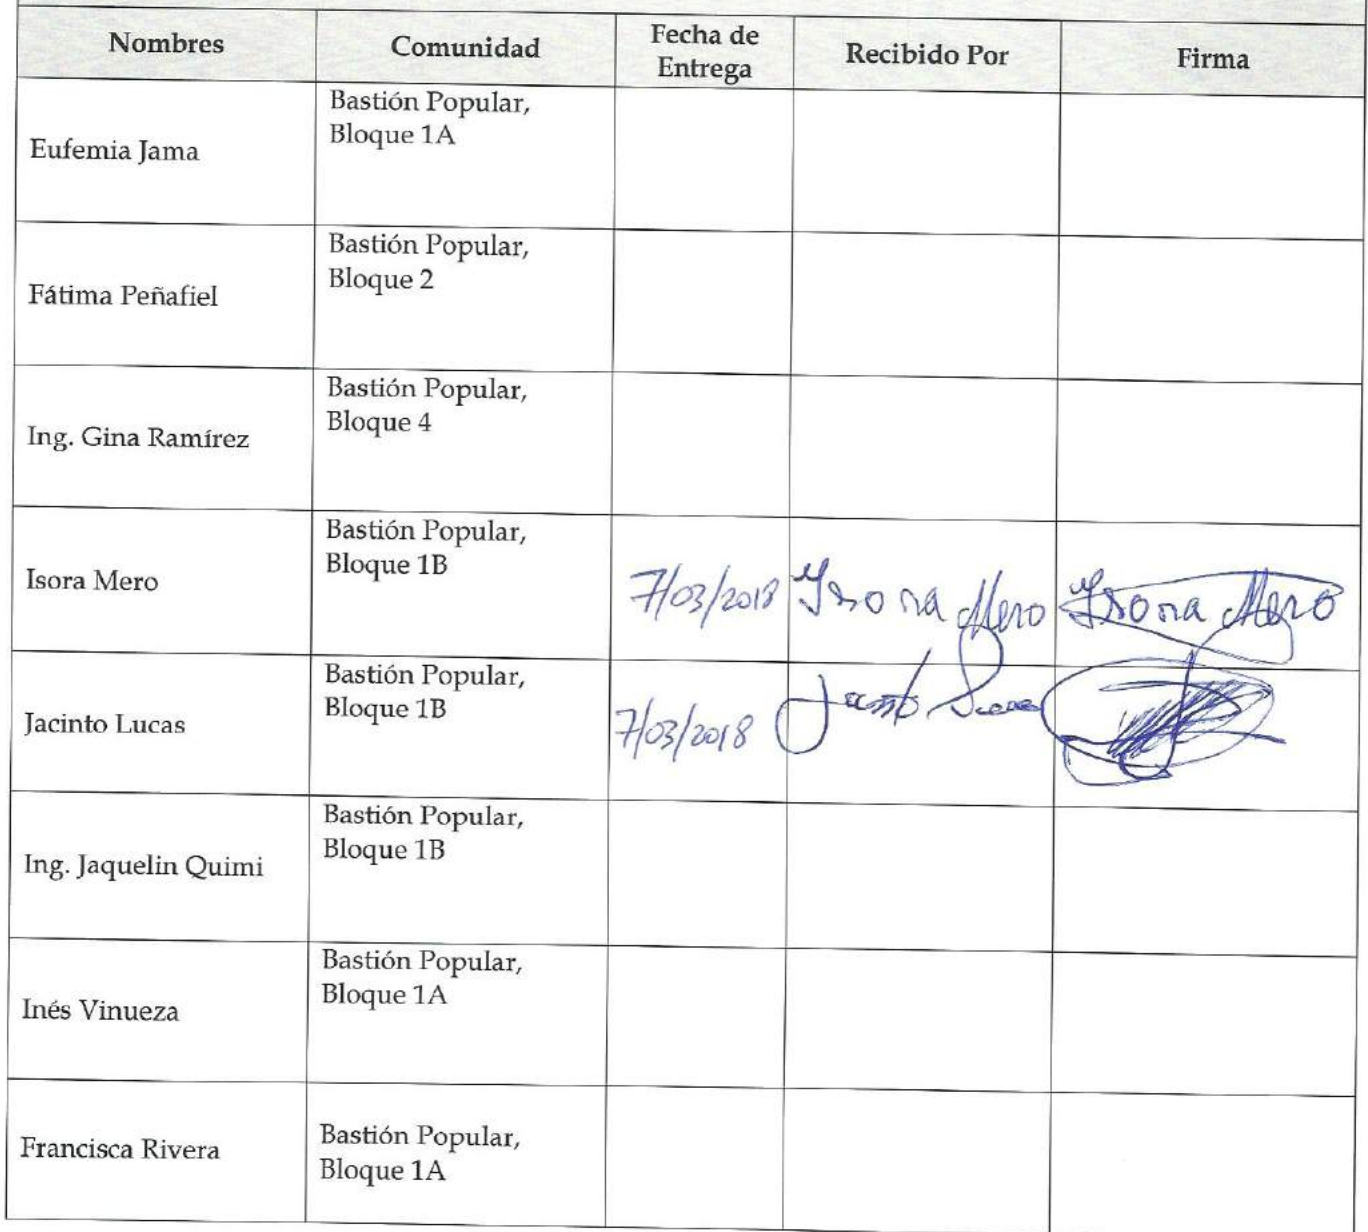 Nombres
Comunidad
Fecha de
Entrega
Recibido Por
Firma
Eufemia Jama
Bastión Popular,
Bloque 1A
Fátima Peñafiel
Bastión Popular,
Bloque 2
Ing. Gina Ramírez
Bastión Popular,
Bloque 4
Isora Mero
Bastión Popular,
Bloque 1B
7/03/2018
Isora Mero
Isora Mero
Jacinto Lucas
Bastión Popular,
Bloque 1B
7/03/2018
Jacinto
Ing. Jaquelin Quimi
Bastión Popular,
Bloque 1B
Inés Vinueza
Bastión Popular,
Bloque 1A
Francisca Rivera
Bastión Popular,
Bloque 1A